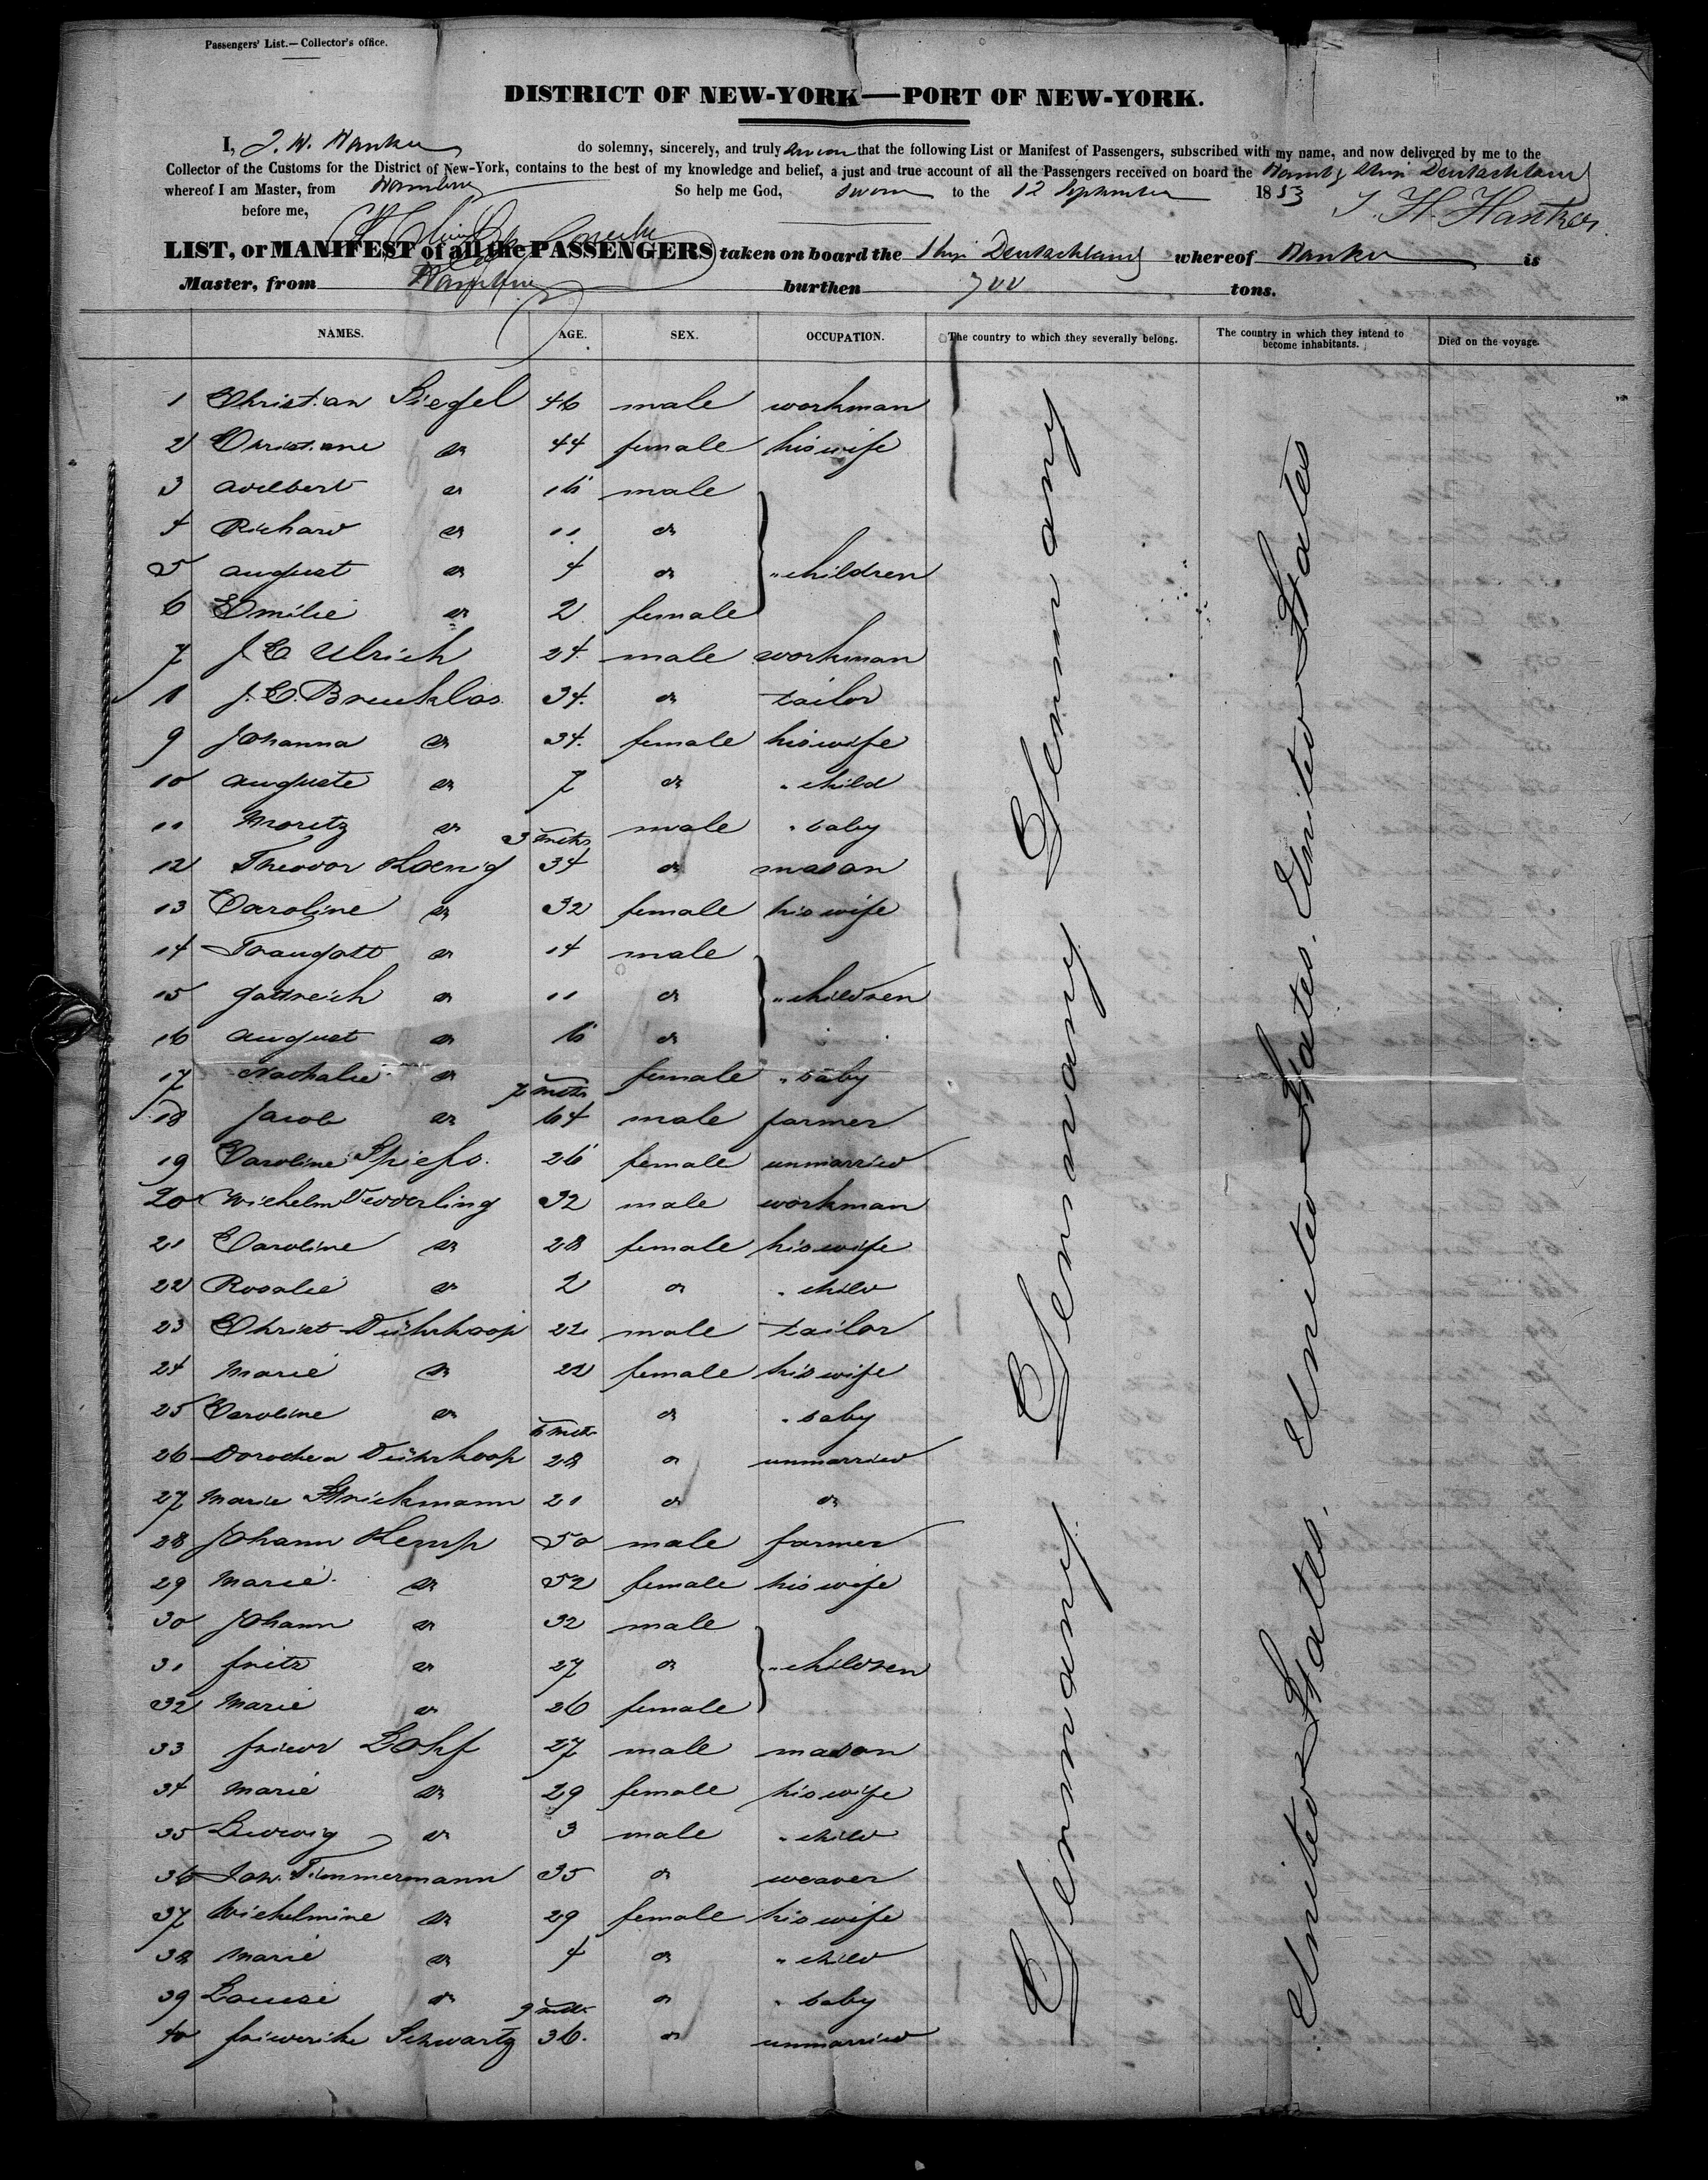 Passengers' List.—Collector's office.
DISTRICT OF NEW-YORK—PORT OF NEW-YORK.
I, J. H. Hanker do solemny, sincerely, and truly swear that the following List or Manifest of Passengers, subscribed with my name, and now delivered by me to the
Collector of the Customs for the District of New-York, contains to the best of my knowledge and belief, a just and true account of all the Passengers received on board the Hambg Ship Deutschland
whereof I am Master, from Hamburg So help me God, sworn to the 12 September 1853 J. H. Hanker.
before me,
LIST, or MANIFEST of all the PASSENGERS taken on board the Ship Deutschland whereof Hanker is
Master, from Hamburg burthen 700 tons.
NAMES. AGE. SEX. OCCUPATION. The country to which they severally belong. The country in which they intend to become inhabitants. Died on the voyage.
1 Christian Siegel 46 male workman
2 Christiane do 44 female his wife
3 Adelbert do 16 male
4 Richard do 11 do
5 August do 4 do " children
6 Emilie do 2 female
7 J. C. Ulrich 24 male workman
8 J. C. Bruuklas 34 do tailor
9 Johanna do 34 female his wife
10 Auguste do 7 do " child
11 Moritz do 3 mths male " baby
12 Theodor Koenig 34 do mason
13 Caroline do 32 female his wife
14 Traugott do 14 male
15 Gottreich do 11 do " children
16 August do 6 do
17 Nathalie do 7 mths female " baby
18 Jacob do 64 male farmer
19 Caroline Spiess 26 female unmarried
20 Wilhelm Dedderling 32 male workman
21 Caroline do 28 female his wife
22 Rosalie do 2 do " child
23 Christ Dührkoop 22 male tailor
24 Marie do 22 female his wife
25 Caroline do 6 mths do " baby
26 Dorothea Dührkoop 28 do unmarried
27 Marie Strickmann 21 do do
28 Johann Kemp 50 male farmer
29 Marie do 52 female his wife
30 Johann do 32 male
31 Fritz do 27 do " children
32 Marie do 26 female
33 Friedr Bohf 27 male mason
34 Marie do 29 female his wife
35 Ludwig do 3 male " child
36 Joh. Timmermann 35 do weaver
37 Wilhelmine do 29 female his wife
38 Marie do 4 do " child
39 Louise do 9 mths do " baby
40 Friederike Schwartz 36 do unmarried
Germany Germany Germany Germany
United States. United States. United States